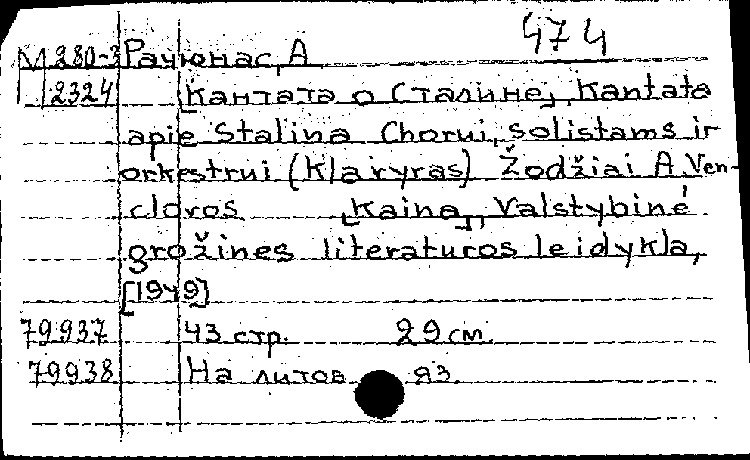 474
М 280-3 Рачюнас, А
2324 [Кантата о Сталине], Kantata
apie Stalina Chorui, solistams ir
orkestrui (Klavyras) Žodžiai A Ven-
clovos [Kaina], Valstybinė
grožines literaturos leidykla,
[1949]
79937 43 стр. 29 см.
79938 На литов. яз.